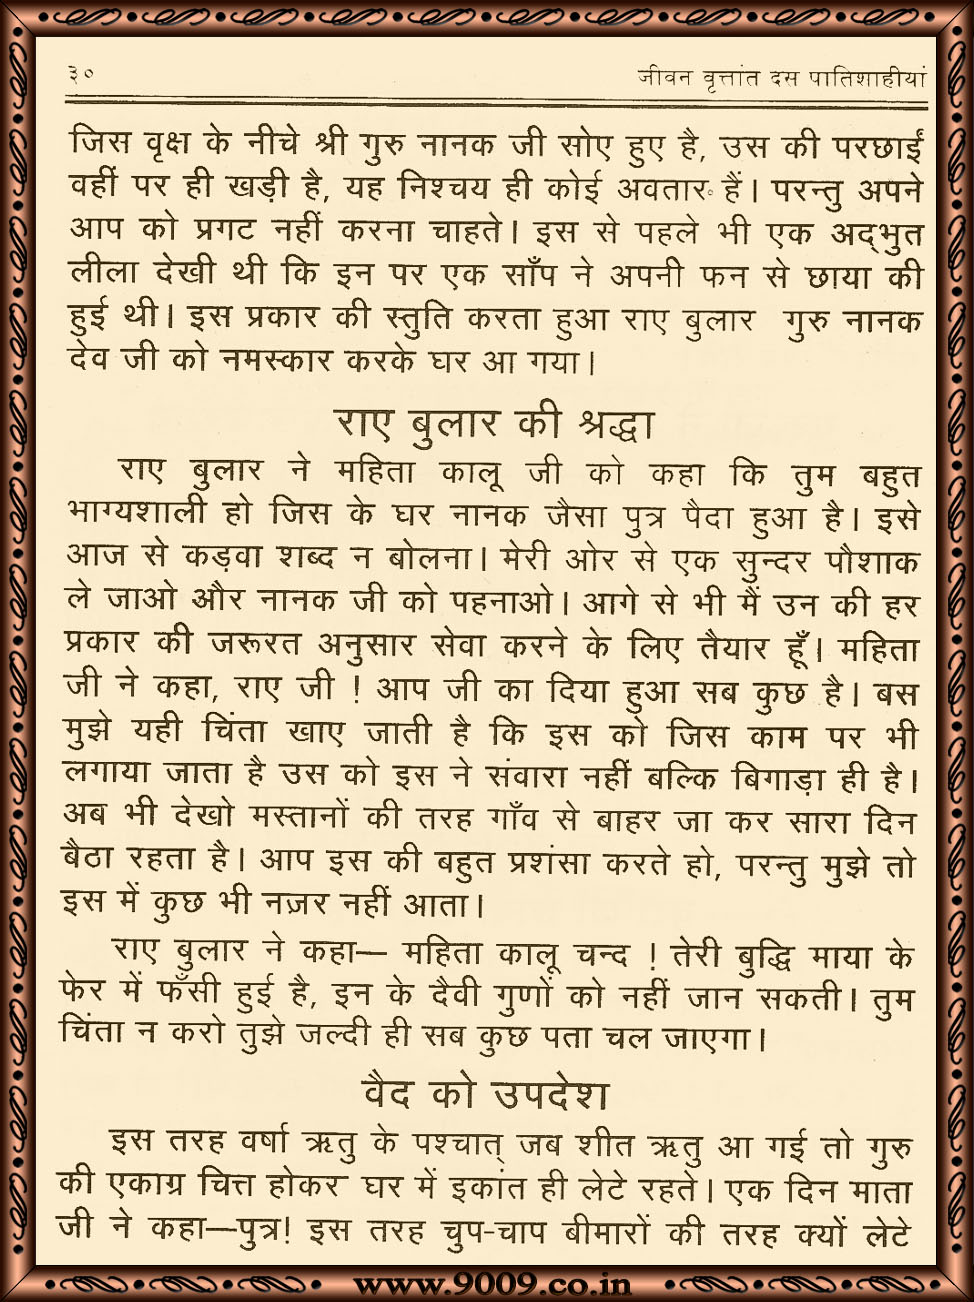 ३० जीवन वृत्तांत दस पातिशाहीयां
जिस वृक्ष के नीचे श्री गुरु नानक जी सोए हुए है, उस की परछाईं
वहीं पर ही खड़ी है, यह निश्चय ही कोई अवतार हैं। परन्तु अपने
आप को प्रगट नहीं करना चाहते। इस से पहले भी एक अद्भुत
लीला देखी थी कि इन पर एक साँप ने अपनी फन से छाया की
हुई थी। इस प्रकार की स्तुति करता हुआ राए बुलार गुरु नानक
देव जी को नमस्कार करके घर आ गया।
राए बुलार की श्रद्धा
राए बुलार ने महिता कालू जी को कहा कि तुम बहुत
भाग्यशाली हो जिस के घर नानक जैसा पुत्र पैदा हुआ है। इसे
आज से कड़वा शब्द न बोलना। मेरी ओर से एक सुन्दर पौशाक
ले जाओ और नानक जी को पहनाओ। आगे से भी मैं उन की हर
प्रकार की जरूरत अनुसार सेवा करने के लिए तैयार हूँ। महिता
जी ने कहा, राए जी ! आप जी का दिया हुआ सब कुछ है। बस
मुझे यही चिंता खाए जाती है कि इस को जिस काम पर भी
लगाया जाता है उस को इस ने संवारा नहीं बल्कि बिगाड़ा ही है।
अब भी देखो मस्तानों की तरह गाँव से बाहर जा कर सारा दिन
बैठा रहता है। आप इस की बहुत प्रशंसा करते हो, परन्तु मुझे तो
इस में कुछ भी नज़र नहीं आता।
राए बुलार ने कहा— महिता कालू चन्द ! तेरी बुद्धि माया के
फेर में फँसी हुई है, इन के दैवी गुणों को नहीं जान सकती। तुम
चिंता न करो तुझे जल्दी ही सब कुछ पता चल जाएगा।
वैद को उपदेश
इस तरह वर्षा ऋतु के पश्चात् जब शीत ऋतु आ गई तो गुरु
की एकाग्र चित्त होकर घर में इकांत ही लेटे रहते। एक दिन माता
जी ने कहा—पुत्र! इस तरह चुप-चाप बीमारों की तरह क्यों लेटे
www.9009.co.in